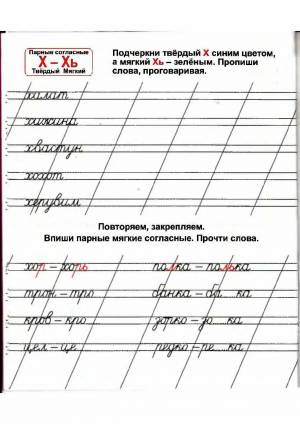 Парные согласные
Х – Хь
Твёрдый Мягкий
Подчеркни твёрдый Х синим цветом,
а мягкий Хь – зелёным. Пропиши
слова, проговаривая.
халат
хижина
хвастун
хохот
херувим
Повторяем, закрепляем.
Впиши парные мягкие согласные. Прочти слова.
хор – хорь полка – полька
трон – тро банка – ба...ка
кров – кро... зорко – зо...ка
цел – це... редко – ре...ка